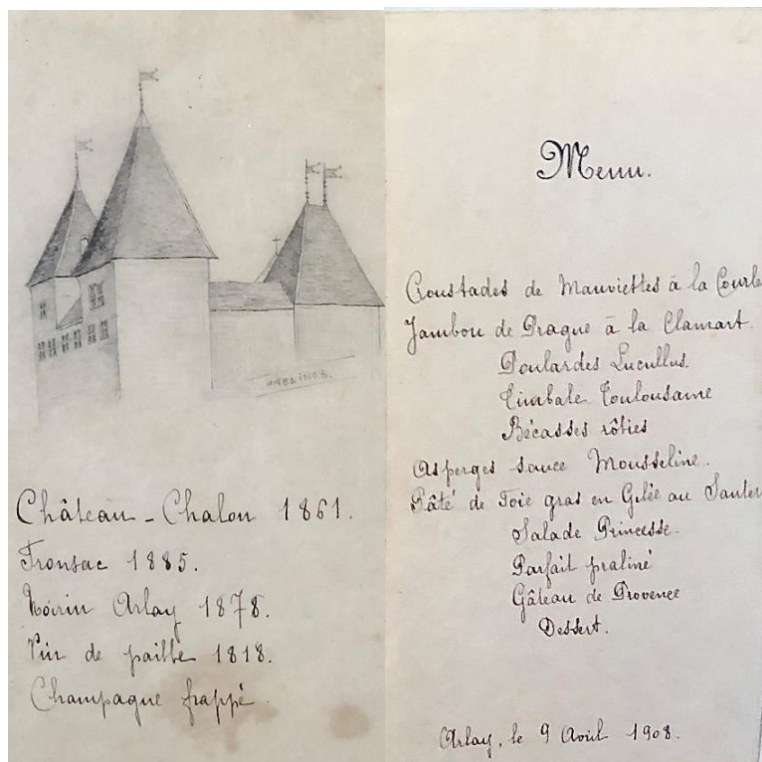 Château-Chalon 1861.
Fronsac 1885.
Arlay 1878.
Vin de paille 1818.
Champagne frappé.
Menu.
Croustades de Mauviettes à la
Jambon de Prague à la Clamart.
Poulardes Lucullus.
Timbale Toulousaine
Bécasses rôties
Asperges sauce Mousseline.
Pâté de Foie gras en Gelée au
Salade Princesse.
Parfait praliné
Gâteau de Provence
Dessert.
Arlay, le 9 Avril 1908.